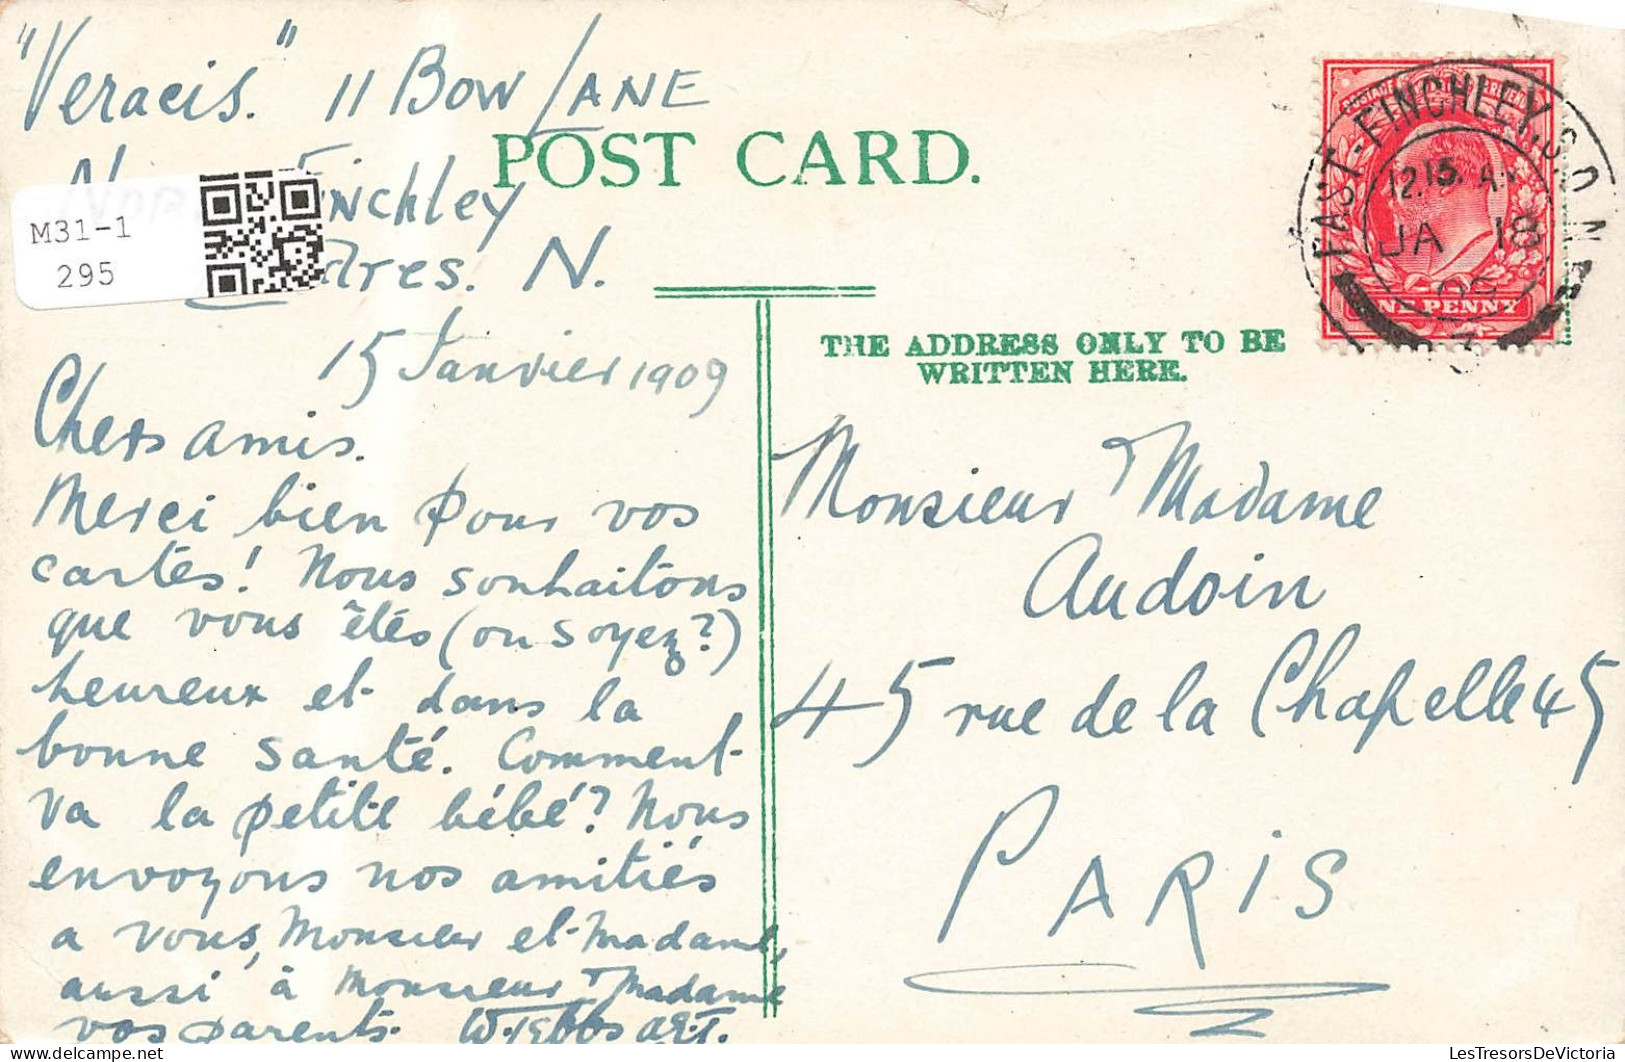 "Veracis." 11 Bow LANE
Finchley
N.
15 Janvier 1909
POST CARD.
M31-1
295
Chers amis.
Merci bien pour vos
cartes! Nous souhaitons
que vous êtés (ou soyez?)
heureux et dans la
bonne santé. Comment
va la petite bébé? Nous
envoyons nos amitiés
a vous, Monsieur et Madame,
aussi à Monsieur & Madame
vos parents.
THE ADDRESS ONLY TO BE
WRITTEN HERE.
EAST-FINCHLEY, S.O. N.
12.15. A
JA 18
09
ONE PENNY
Monsieur & Madame
Audoin
45 rue de la Chapelle 45
PARIS
LesTresorsDeVictoria.com